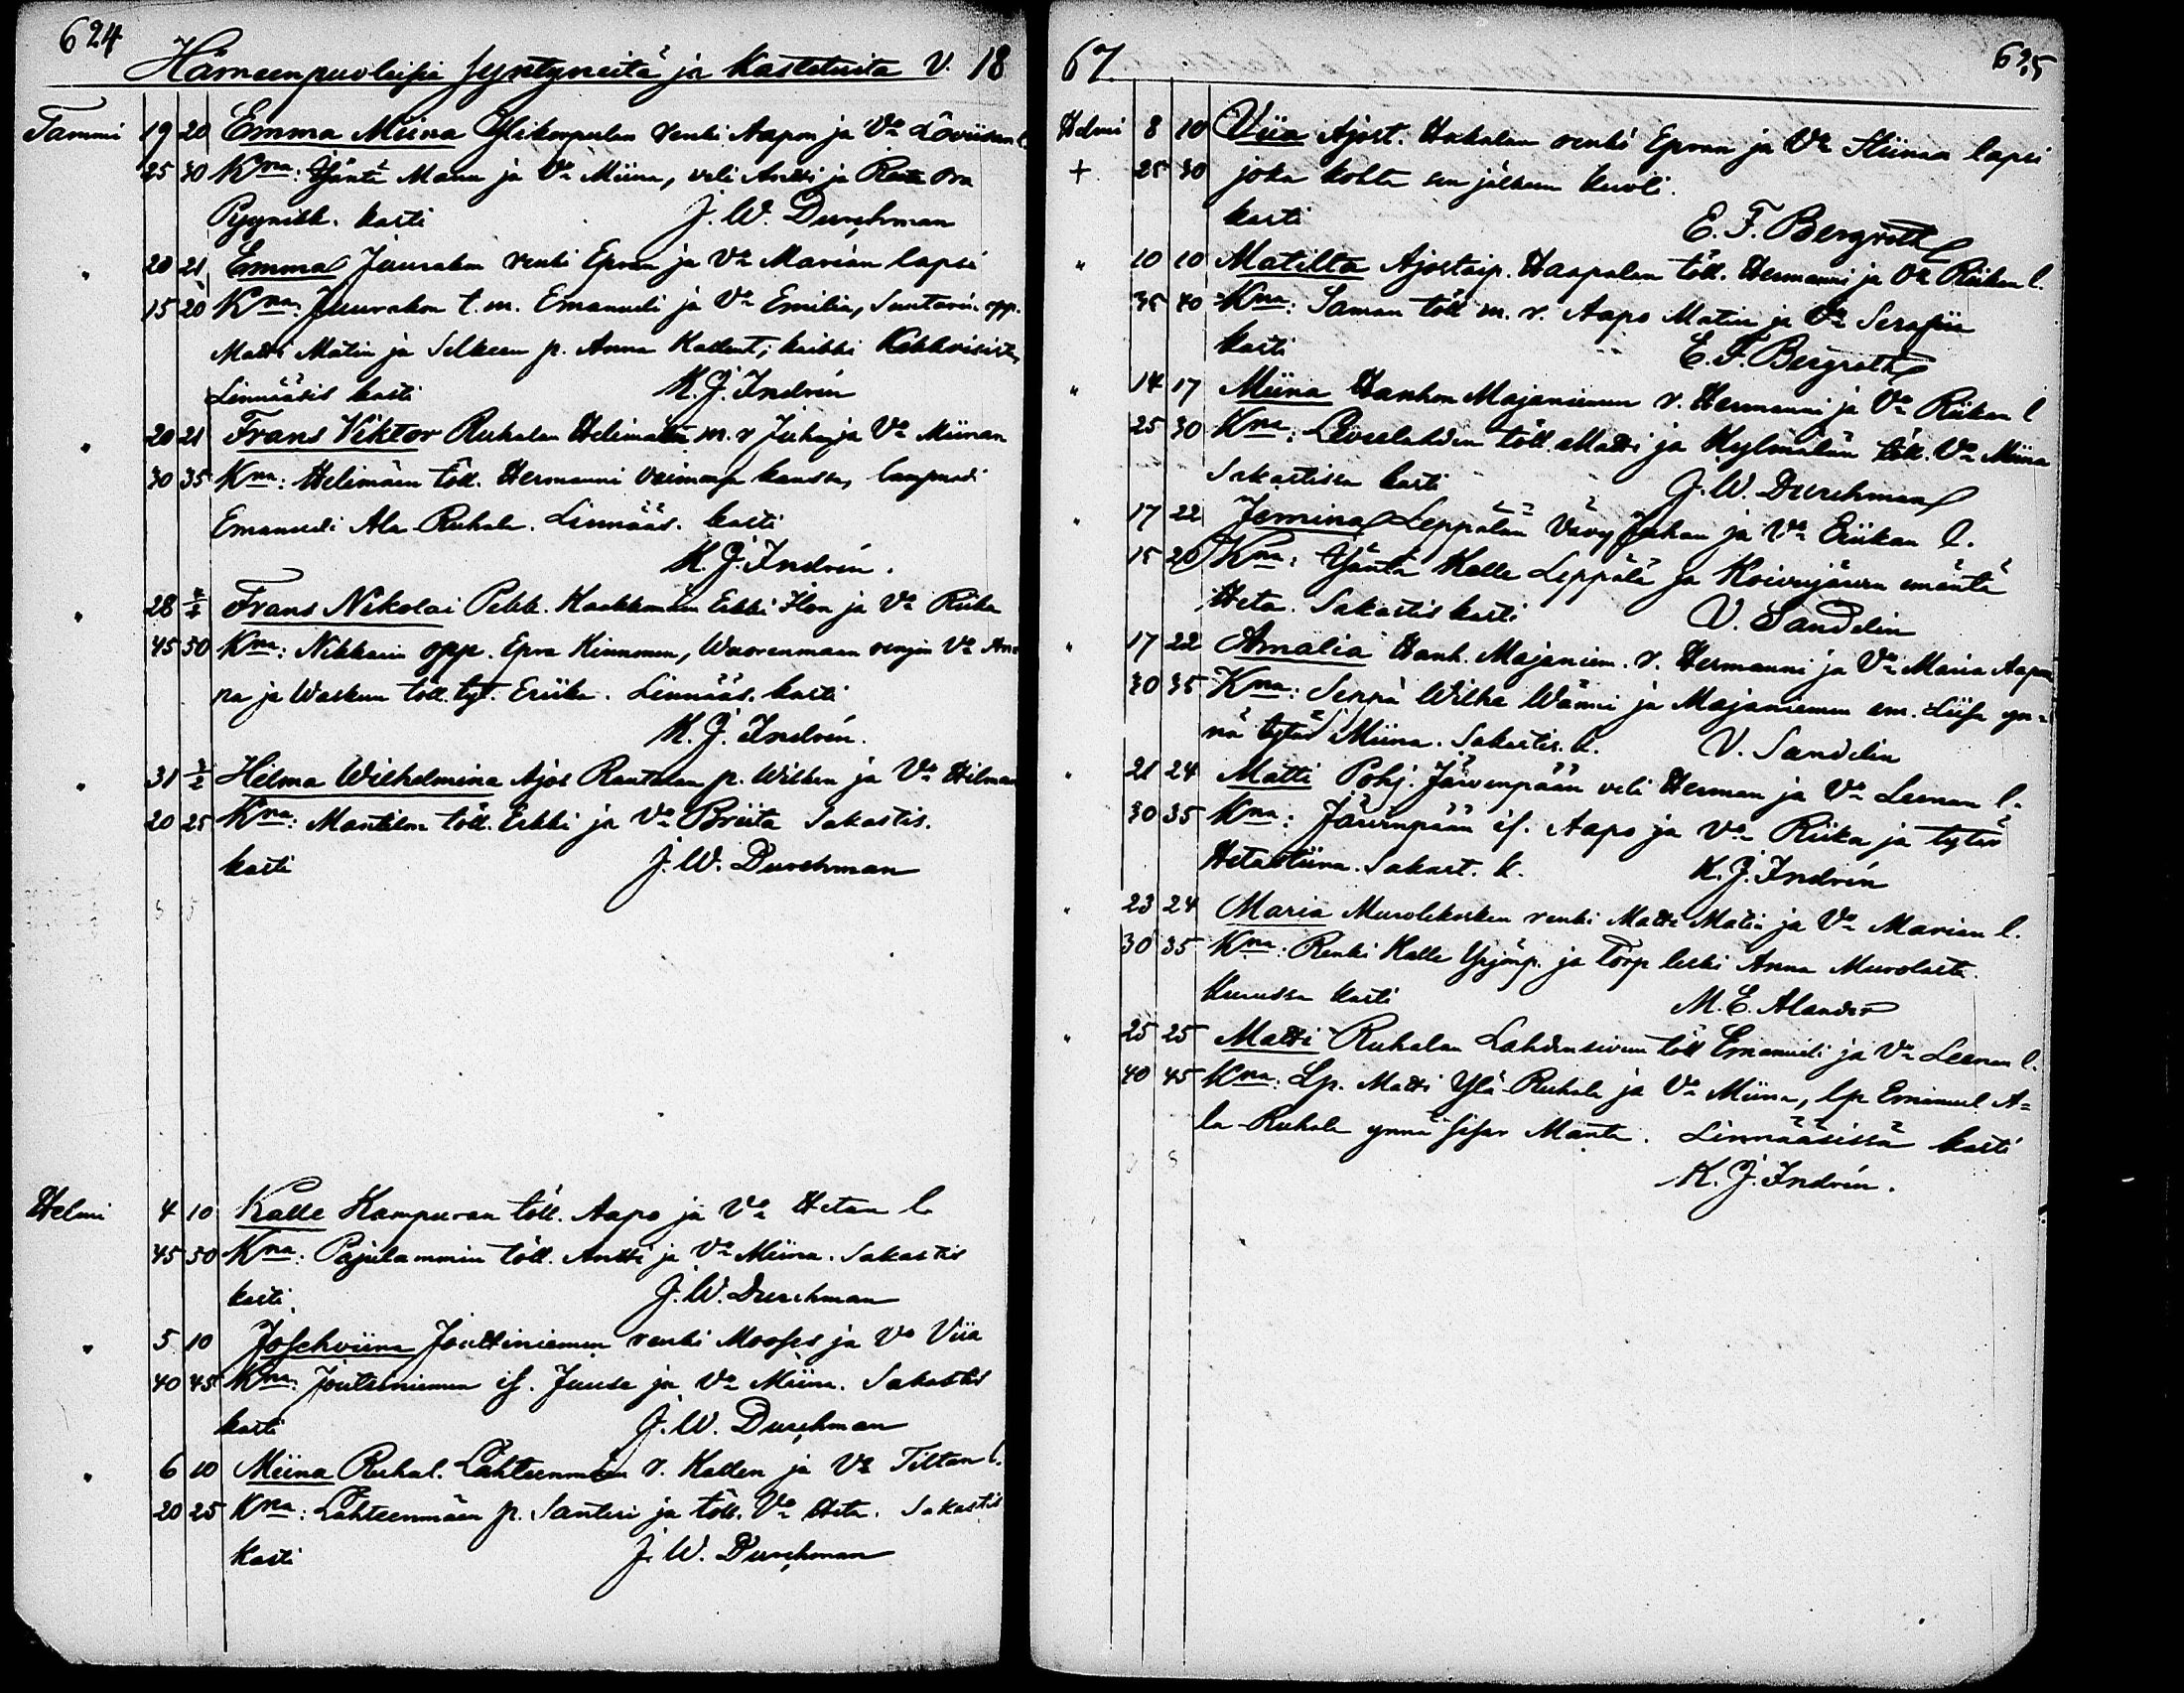 624
Hämeenpuoleisia syntyneitä ja kastetuita V. 18
Tammi 19 20 Emma Miina Ylikorpulan renki Aapon ja Va Loviisan l.
25 30 Kna: Isäntä Manu ja Va Miina, veli Antti ja
kasti J. W. Durchman
" 20 21 Emma Juurakon renki Epran ja Va Marian lapsi
15 20 Kna: Juurakon t. m. Emanueli ja Va Emilia, opp.
Matti Matin ja p. Anna kaikki
Linnääsis kasti K. J. Indrén
" 20 21 Frans Viktor Ruhalan Helimäen m. r Juho ja Va Miinan
30 35 Kna: Helimäen töll. Hermanni vaimonsa kanssa, lampuodi
Emanueli Ala-Ruhala. Linnääs. kasti
K. J. Indrén.
" 28 Frans Nikolai Pekk. Erkki Ilon ja Va Riika
45 50 Kna: Nikkarin opp. Epra Kinnonen, Wuorenmaan rengin Va An
na ja töll. tyt. Eriika. Linnääs. kasti
K. J. Indrén.
" 31 Helma Wilhelmina Ajos Rantalan p. Wilken ja Va Hilman
20 25 Kna: Mantilan töll. Erkki ja Va Briita Sakastis.
kasti J. W. Durchman
Helmi 4 10 Kalle Kampuran töll. Aapo ja Va Hetan l.
45 50 Kna: Pajulammin töll. Antti ja Va Miina. Sakastis
kasti J. W. Durchman
" 5 10 Josehviina Jouttiniemen renki Mooses ja Va Viia
40 45 Kna: Joutsiniemen is. Juuse ja Va Miina. Sakastis
kasti J. W. Durchman
" 6 10 Miina Ruhal. Lähteenmäen r. Kallen ja Va Tiltan l.
20 25 Kna: Lähteenmäen p. Santeri ja töll. Va Heta. Sakastis
kasti J. W. Durchman
67 625
Helmi 8 10 Viia Ajost. Hakalan renki Epran ja Va Stiinan lapsi
+ 25 30 joka kohta sen jälkeen kuoli.
kasti E. F. Bergroth
" 10 10 Matilta Ajostaip. Haapalan töll. Hermanni ja Va Riikan l.
35 40 Kna: Saman töll m. r. Aapo Matin ja Va Serafiia
kasti E. F. Bergroth
" 14 17 Miina Hanhon Majaniemen r. Hermanni ja Va Riikan l
25 30 Kna: töll. Matti ja Kylmälän töll. Va Miina
Sakastissa kasti J. W. Durchman
" 17 22 Jemina Leppälän Vävy Juhan ja Va Eriikan l.
15 20 Kna: Isäntä Kalle Leppälä ja Koivujärven emäntä
Heta. Sakastis kasti V. Sandelin
" 17 22 Amalia Hanh. Majaniem. r. Hermanni ja Va Maria Aapon
30 35 Kna: Seppä Wilhe Wänni ja Majaniemen em. Liisa yn=
nä tytär Miina. Sakastis. k. V. Sandelin
" 21 24 Matti Pohj. Järvenpään veli Herman ja Va Leenan l.
30 35 Kna: Järvenpään is. Aapo ja Va Riika ja tytär
Hetastiina. Sakast. k. K. J. Indrén
" 23 24 Maria Murolekosken renki Matti Matin ja Va Marian l.
30 35 Kna: Renki Kalle Yrjönp. ja Torp leski Anna Murolasta.
Kurussa kasti M. E. Alander
" 25 25 Matti Ruhalan Lahdensivun töll Emanueli ja Va Leenan l.
40 45 Kna: Lp. Matti Ylä-Ruhala ja Va Miina, lp Emanuel A=
la-Ruhala ynnä sisar Manta. Linnääsissä kasti
K. J. Indrén.